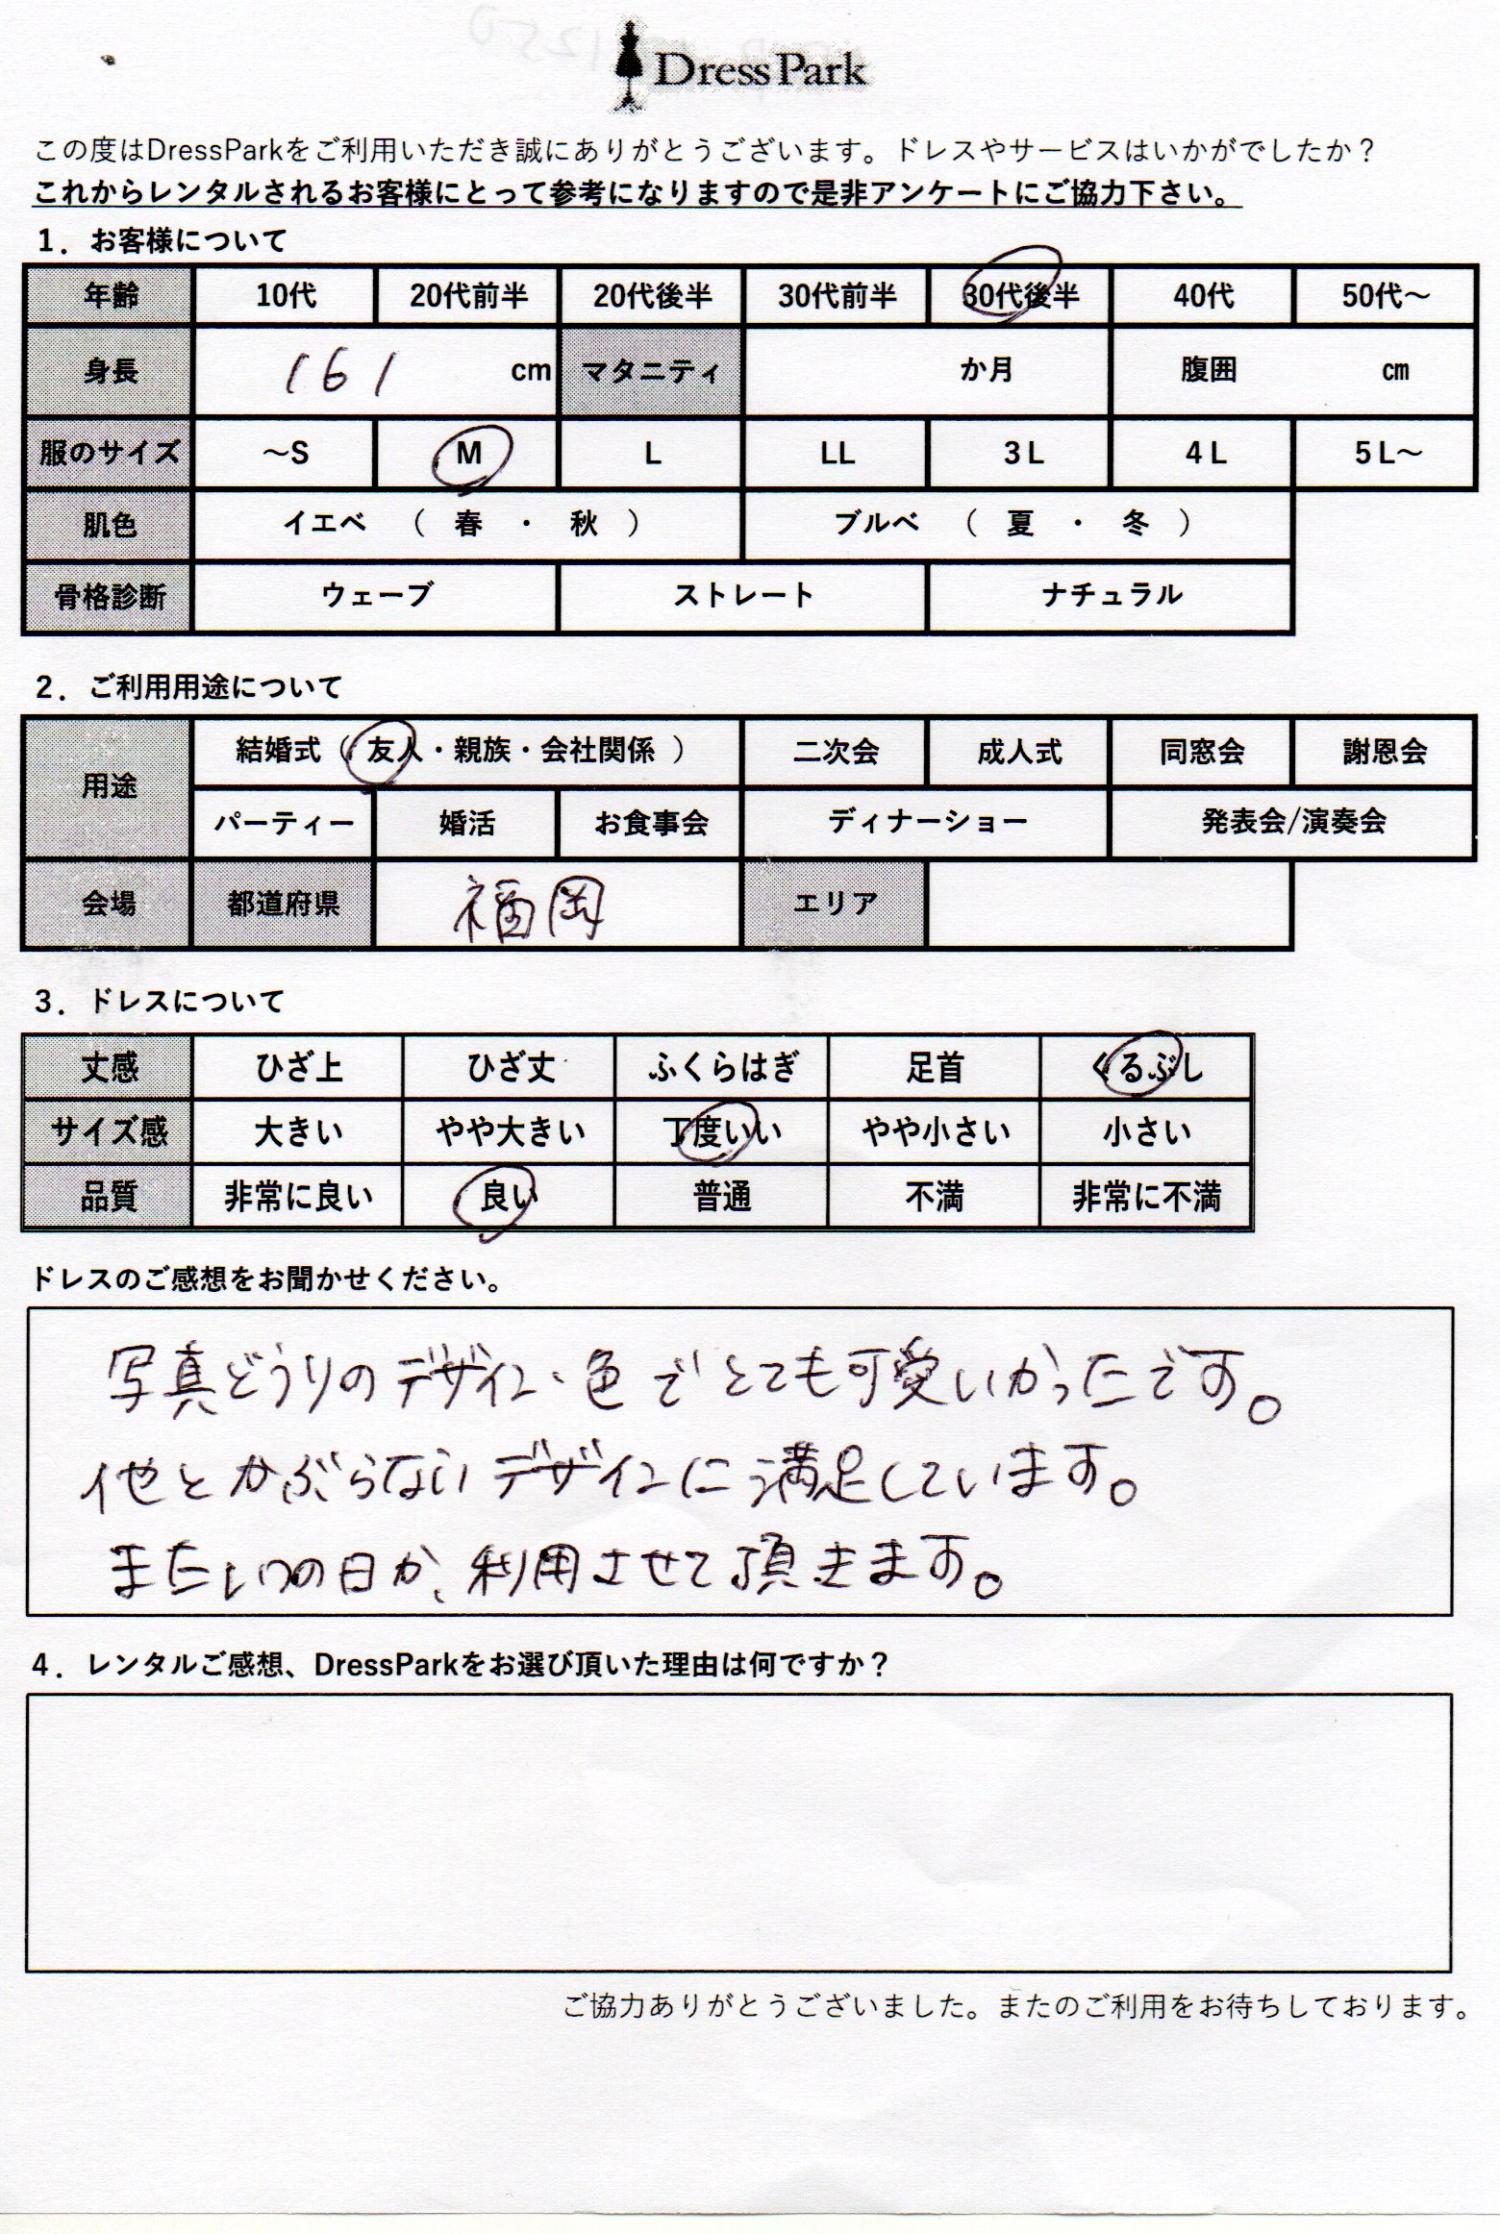 Dress Park
この度はDressParkをご利用いただき誠にありがとうございます。ドレスやサービスはいかがでしたか？
これからレンタルされるお客様にとって参考になりますので是非アンケートにご協力下さい。
1．お客様について
年齢 10代 20代前半 20代後半 30代前半 30代後半 40代 50代～
身長 161 cm マタニティ か月 腹囲 ㎝
服のサイズ ～S M L LL 3L 4L 5L～
肌色 イエベ （ 春 ・ 秋 ） ブルベ （ 夏 ・ 冬 ）
骨格診断 ウェーブ ストレート ナチュラル
2．ご利用用途について
用途 結婚式（ 友人・親族・会社関係 ） 二次会 成人式 同窓会 謝恩会
パーティー 婚活 お食事会 ディナーショー 発表会/演奏会
会場 都道府県 福岡 エリア
3．ドレスについて
丈感 ひざ上 ひざ丈 ふくらはぎ 足首 くるぶし
サイズ感 大きい やや大きい 丁度いい やや小さい 小さい
品質 非常に良い 良い 普通 不満 非常に不満
ドレスのご感想をお聞かせください。
写真どうりのデザイン、色でとても可愛いかったです。
他とかぶらないデザインに満足しています。
またいつの日か、利用させて頂きます。
4．レンタルご感想、DressParkをお選び頂いた理由は何ですか？
ご協力ありがとうございました。またのご利用をお待ちしております。